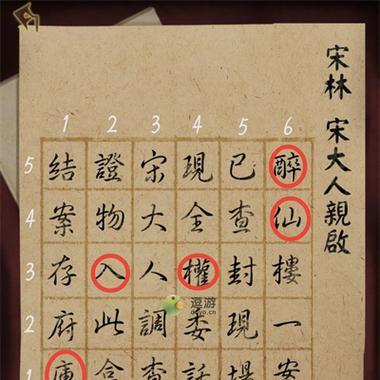 宋林 宋大人親啟
1 2 3 4 5 6
5
4
3
2
1
醉仙樓一案
已查封現場
現全權委託
宋大人調查
證物入此盒
結案存府庫
逗游
doyo.cn